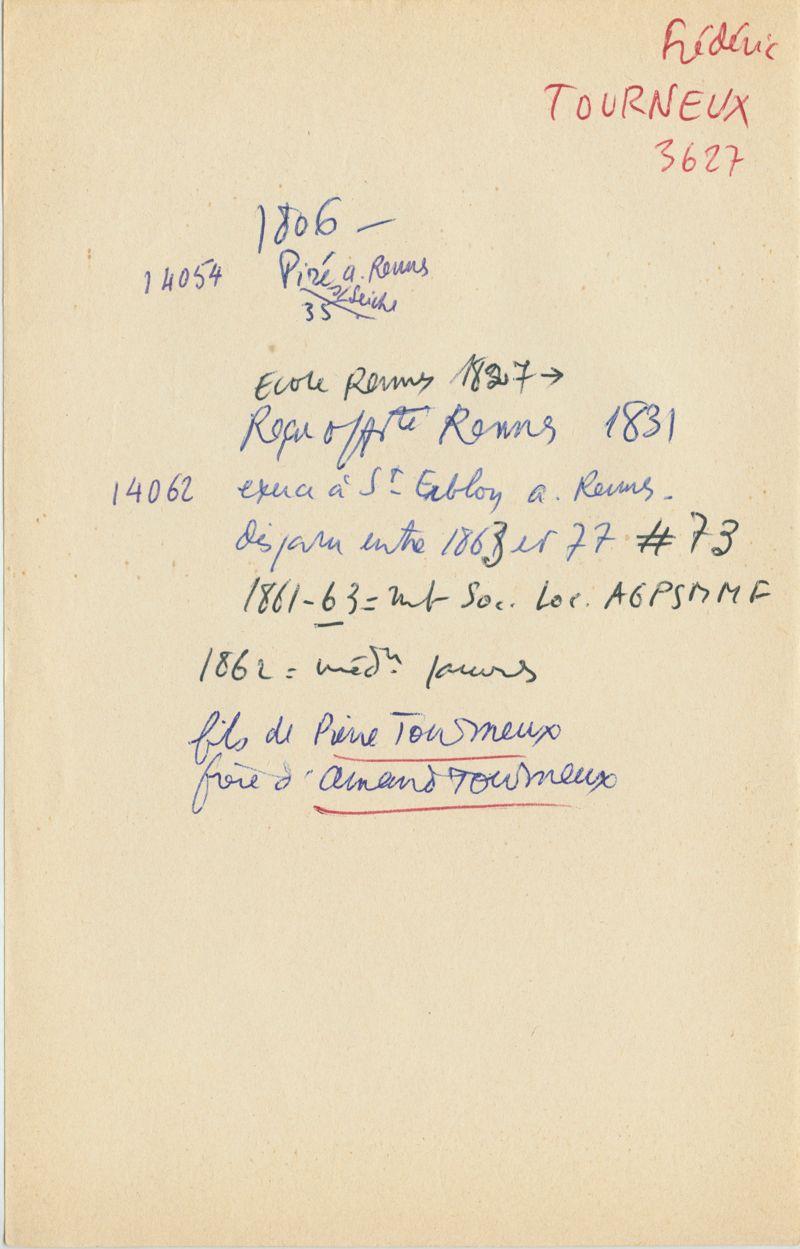 Frédéric
TOURNEUX
3627
1806 –
14054 Piré a. Rennes
s/Seiche
35
Ecole Rennes 1827 →
Reçu offté Rennes 1831
14062 exerce à St Erblon a. Rennes.
disparu entre 1863 et 77 # 73
1861-63 = Soc. Loc. AGPSMMF
1862 = médn jaunes
fils de Pierre Tourneux
frère d'Amand Tourneux